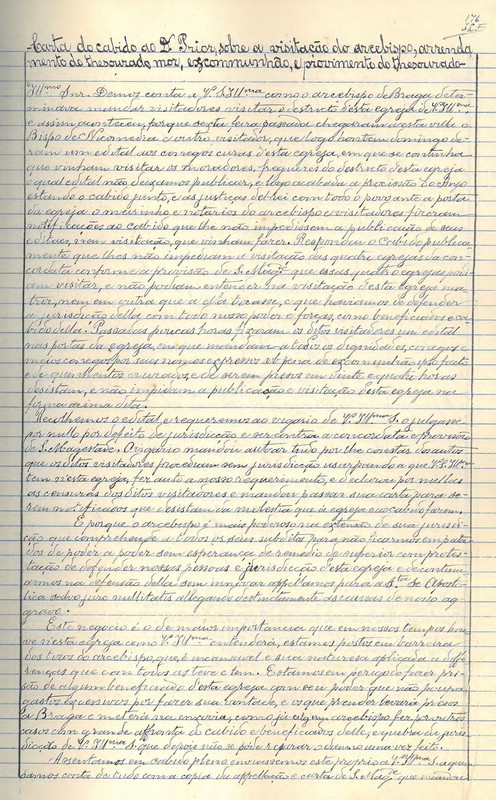 176
Carta do cabido ao D. Prior, sobre a visitação do arcebispo, arrenda
mento do thesourado mor, excommunhão, e provimento do thesourado
Ill.mo Snr. Demos conta a V.ª Ill.ma como o arcebispo de Braga deter-
minava mandar visitadores visitar o destricto desta egreja de V.ª Ill.ma,
e assim aconteceu, porque sexta feira passada chegaram a esta villa o
Bispo de Nicomedia e outro visitador, que logo hontem domingo de-
ram um edital aos conegos curas d'esta egreja, em que se continha
que vinham visitar os moradores, freguezes do destricto desta egreja
o qual edital não deixamos publicar, e logo acabada a procissão do Anjo
estando o cabido junto, e as justiças del rei com todo o povo ante a porta
da egreja o meirinho e notarios do arcebispo e visitadores fizeram
notificações ao cabido que lhe não impedissem a publicação de seus
editaes, nem visitação, que vinham fazer. Respondeu o Cabido publica
mente que lhes não impediam a visitação das quatro egrejas da con-
cordata conforme a provisão de S. Mag.e que essas quatro egrejas podi-
am visitar, e não podiam entender na visitação desta egreja ma-
triz, nem em outra que a ella tocasse, e que haviamos de defender
a jurisdicção della com todo nosso poder e forças, como beneficiados e ca-
bido della. Passadas poucas horas fizeram os ditos visitadores um edital
nas portas da egreja, em que mandam a todos os dignidades, conegos e
meios conegos por seus nomes expressos sob pena de excommunhão ipso facto
e de quinhentos cruzados, e de serem presos em vinte e quatro horas
desistam, e não impidam a publicação e visitação desta egreja na
forma acima dita.
Recolhemos o edital e requeremos ao vigario de V.ª Ill.ma S. o julgasse
por nullo por defeito de jurisdicção e ser contra a concordata e provisão
de S. Magestade. O vigario mandou autoar tudo, por lhe constar dos autos
que os ditos visitadores procediam sem jurisdicção usurpando a que V.ª Ill.ma
tem n'esta egreja, fez auto a nosso requerimento, e declarou por nullas
as censuras dos ditos visitadores e mandou passar sua carta para se-
rem notificados que desistam da molestia que á egreja e ao cabido fazem.
E porque o arcebispo é mais poderoso na extensão de sua jurisdi-
ção que comprehende a todos os seus subditos para não ficarmos empata
dos de poder a poder sem esperança de remedio de superior com protes-
tação de defender nossas pessoas e jurisdicção desta egreja e de continu
armos na defensão della sem innovar appellamos para a S.ta Sé Aposto-
lica salvo jure nullitatis allegando destinctamente as causas de nosso ag-
gravo.
Este negocio é o de maior importancia que em nossos tempos hou-
ve n'esta egreja como V.ª Ill.ma entenderá, estamos postos em barreira
dos tiros do arcebispo, que é incansavel e sua natureza aplicada a diffe-
renças que com todos as teve e tem. Estamos em perigo de fazer pri-
são de algum beneficiado d'esta egreja com seu poder que não poupa
gastos excessivos por fazer sua vontade, e o que prender levará preso
a Braga e metera na enxovia, como já algum arcebispo fez por outros
casos com grande affronta do cabido e beneficiados delle, e quebra da juris-
dicção de V.ª Ill.ma S. que depois não se póde reparar o damno uma vez feito.
Assentamos em cabido pleno enviassemos este proprio a V.ª Ill.ma S. a quem
damos conta de tudo com a copia da appellação e carta de S. Mag.e que mandou